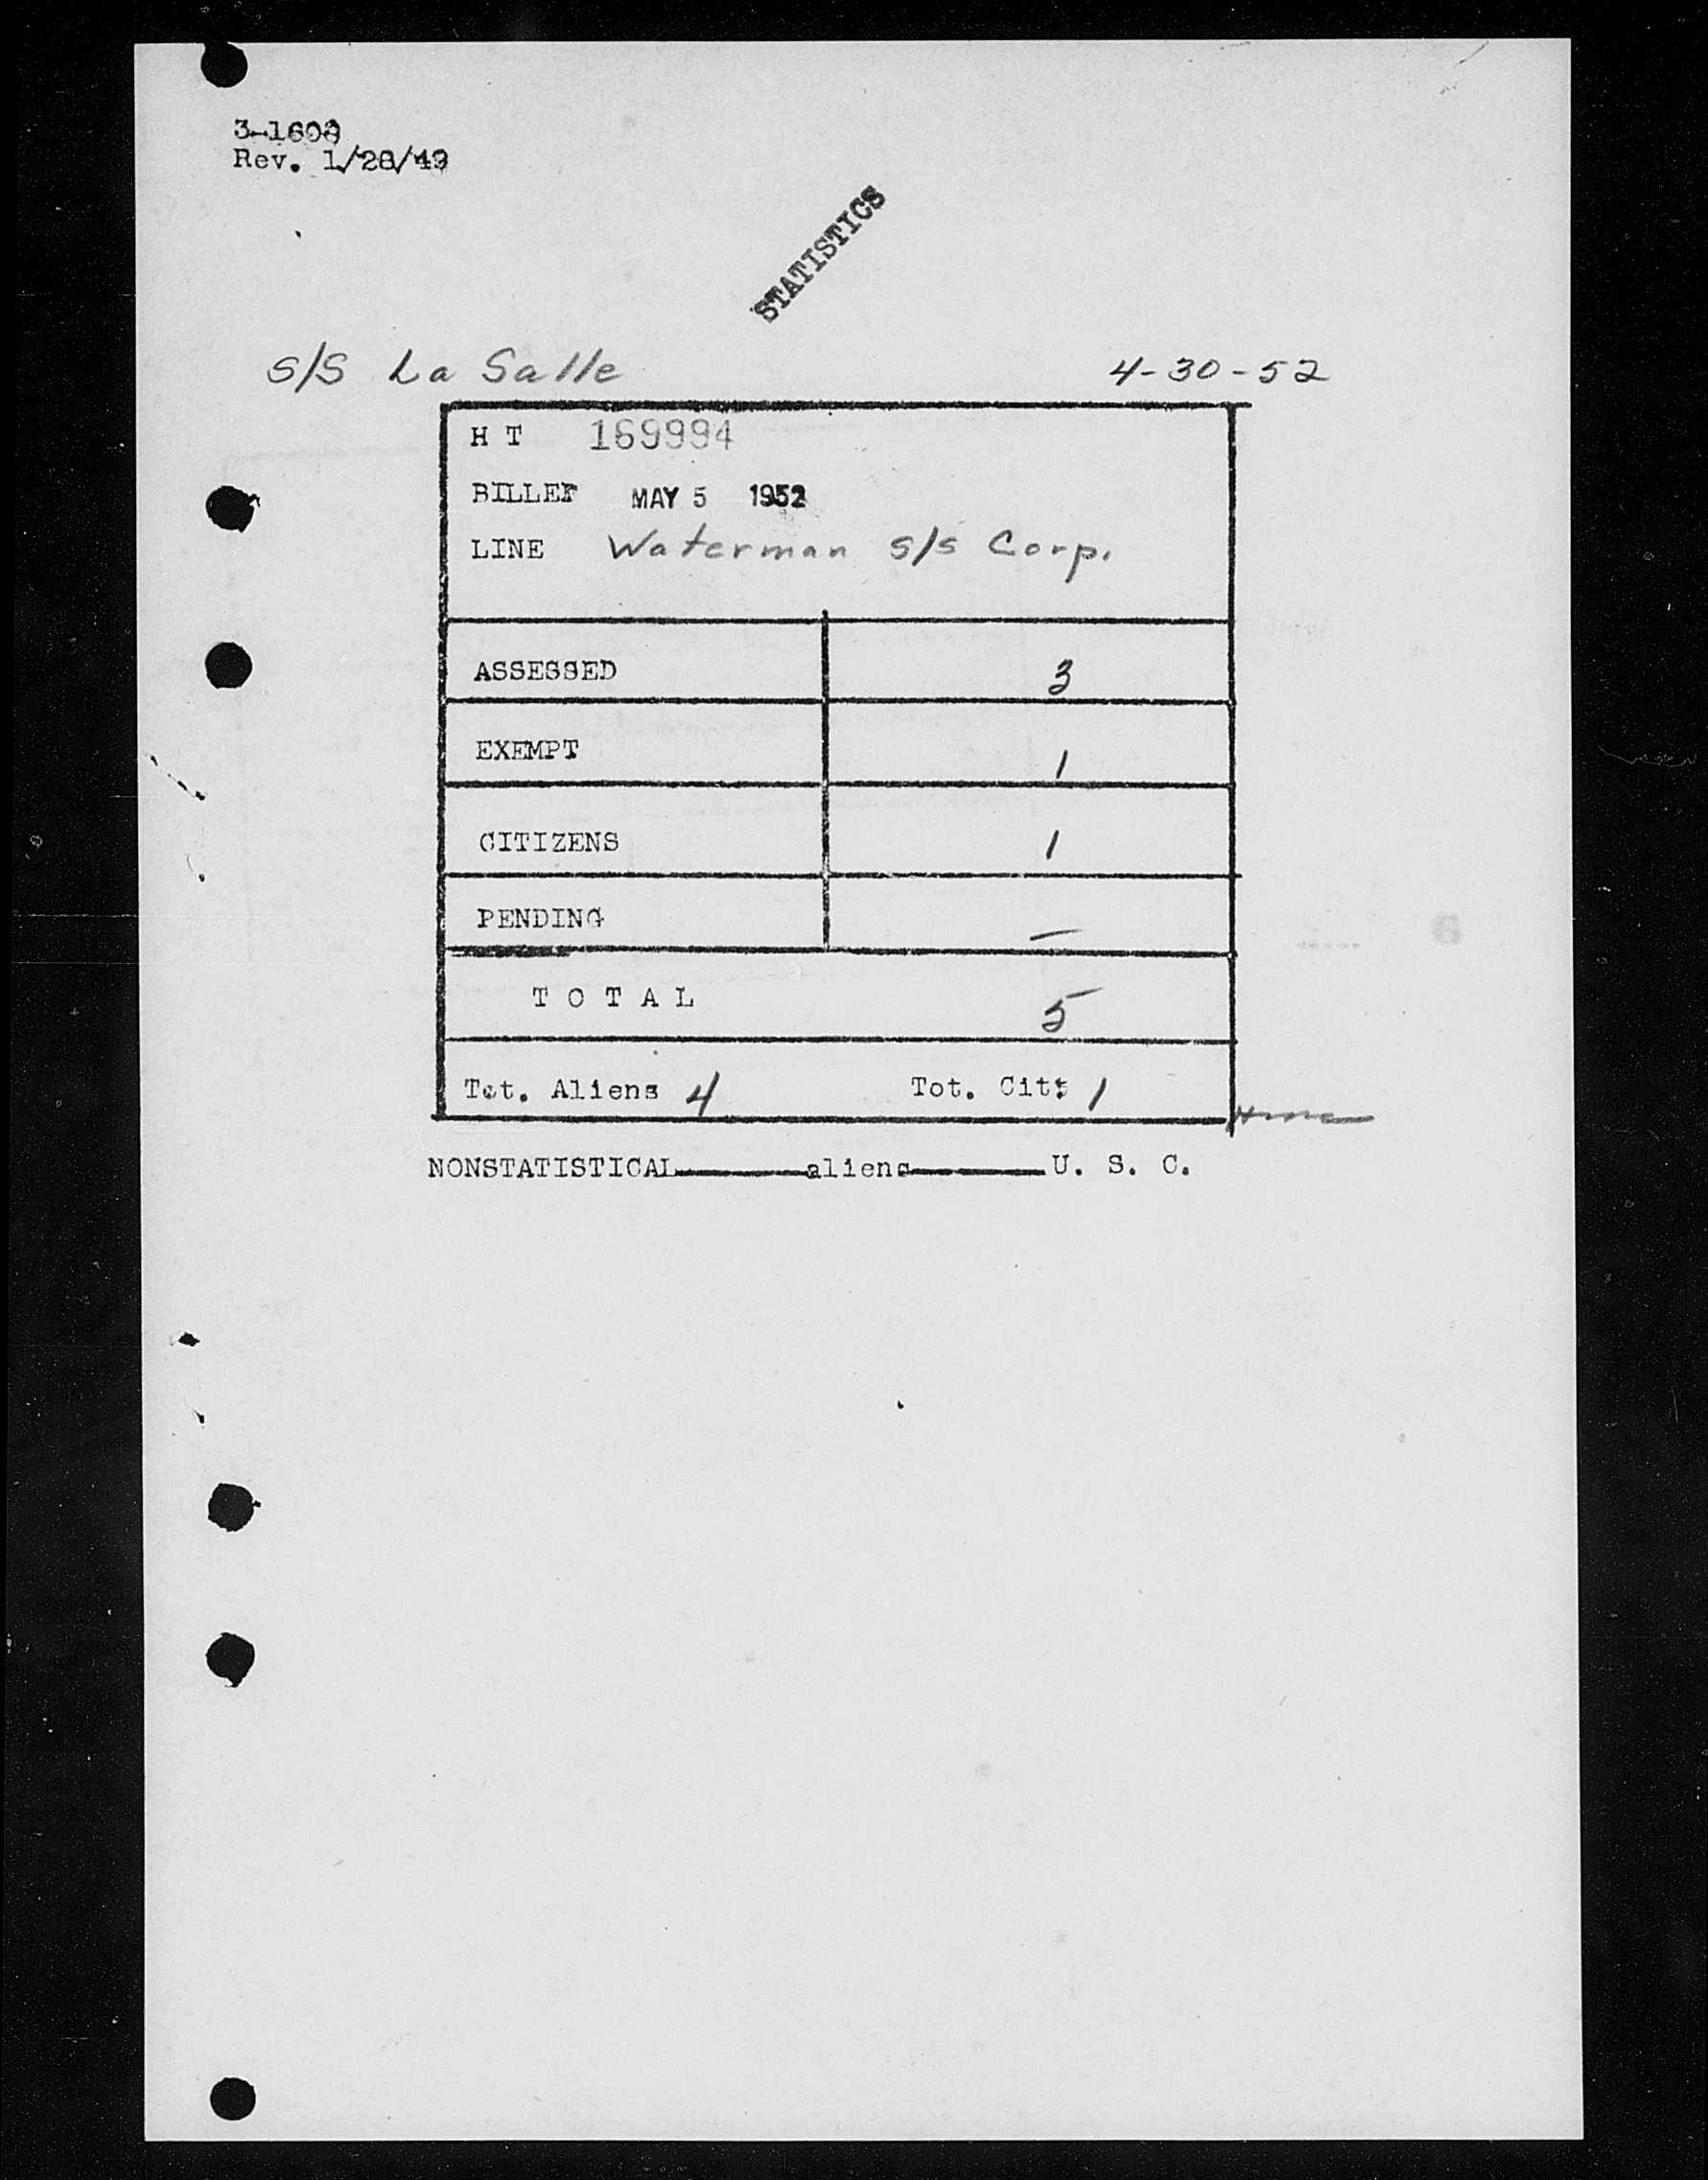 3-1608
Rev. 1/28/49
STATISTICS
S/S La Salle 4-30-52
H T 169994
BILLED MAY 5 1952
LINE Waterman S/S Corp.
ASSESSED 3
EXEMPT 1
CITIZENS 1
PENDING —
T O T A L 5
Tot. Aliens 4 Tot. Cit: 1
NONSTATISTICAL______aliens______U. S. C.